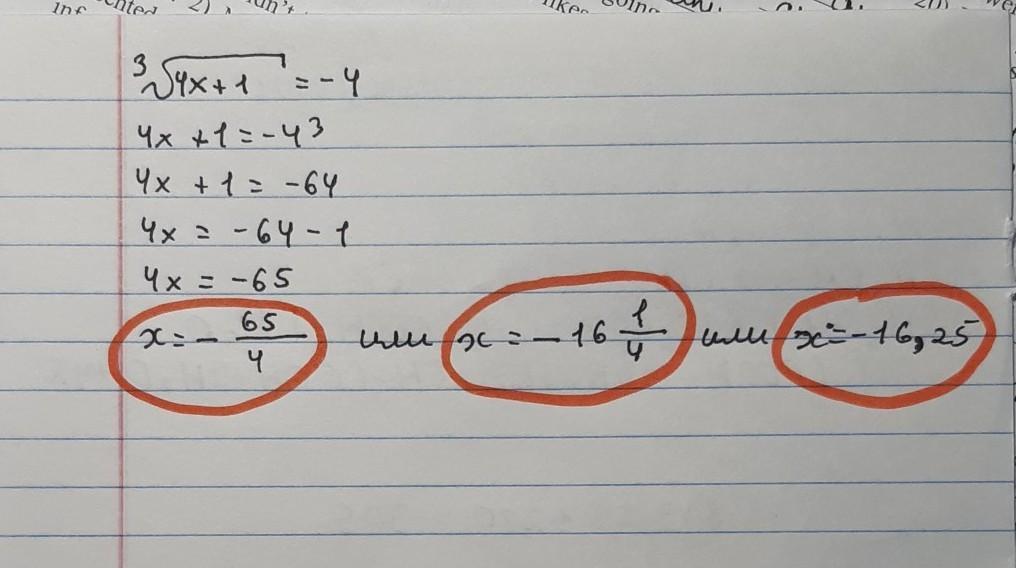 ∛(4x+1) = -4
4x + 1 = -4³
4x + 1 = -64
4x = -64 - 1
4x = -65
x = - 65/4 или x = -16 1/4 или x = -16,25